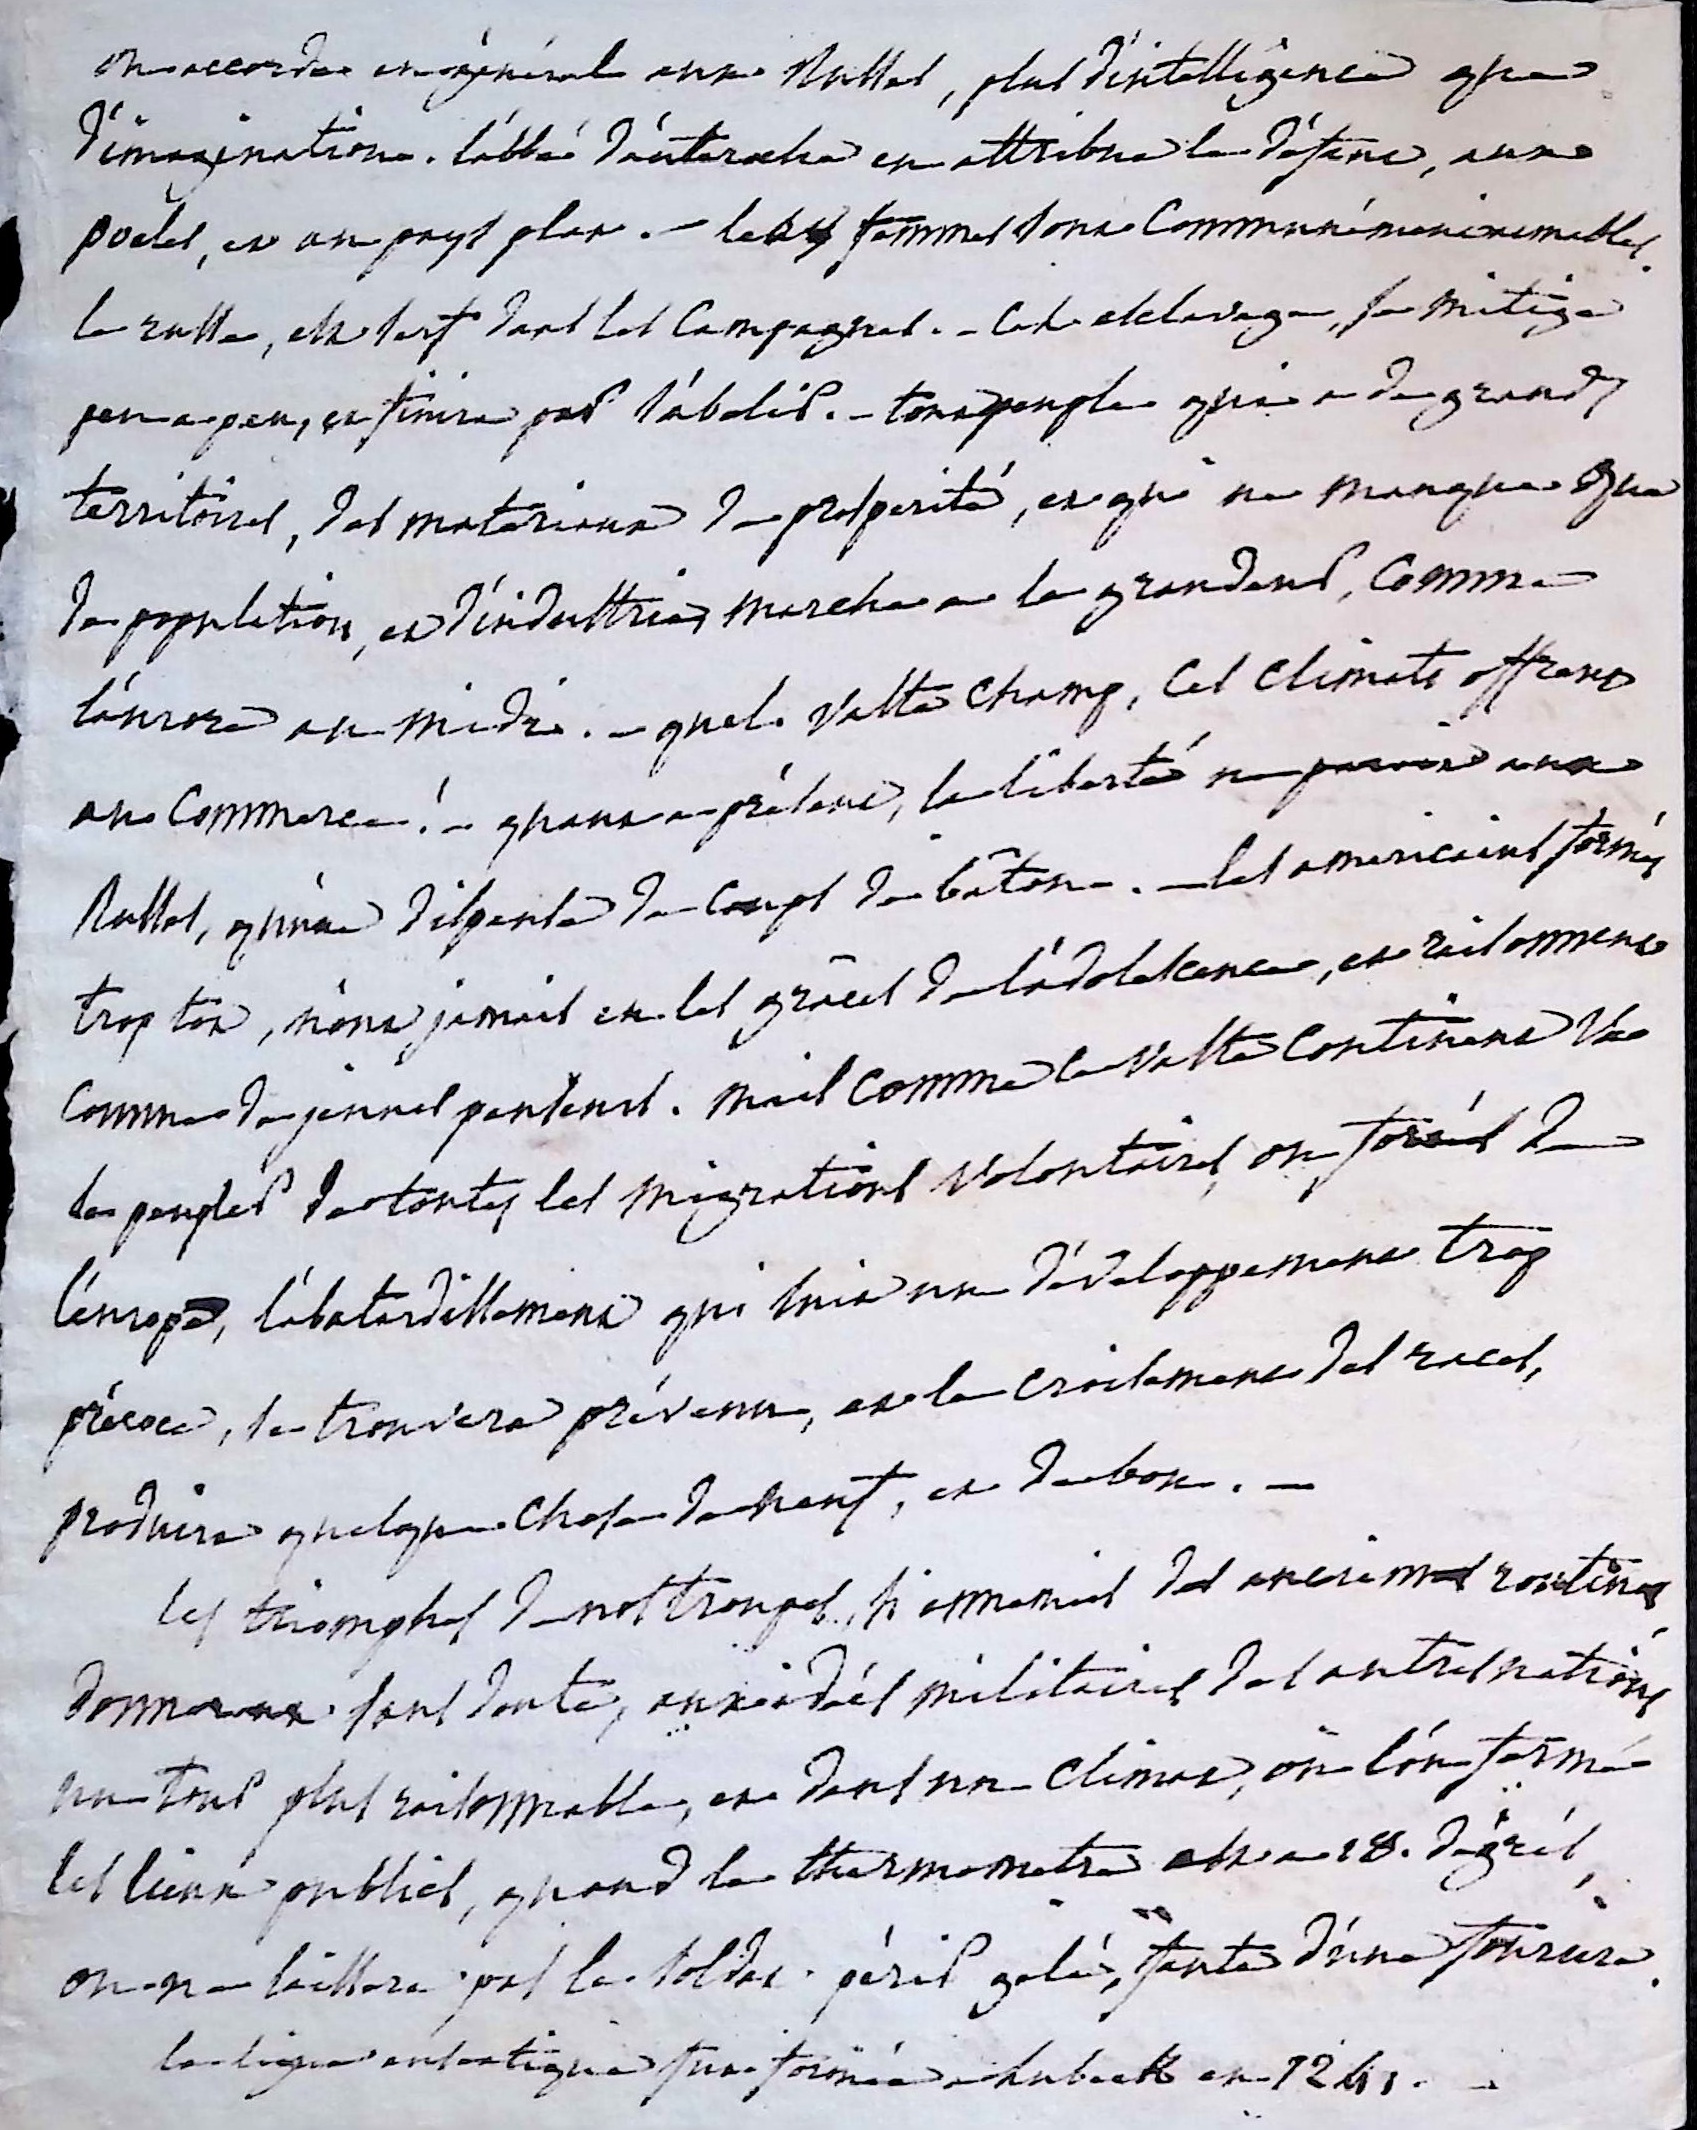 on accorde en général aux Russes, plus d'intelligence que
d'imagination. l'abbé d'auteroche en attribue le défaut, aux
poëles, et au pays plat. - les femmes sont communément aimables.
le russe, est serf dans les campagnes. - cet esclavage, se mitige
peu a peu, et finira par s'abolir. - tout peuple qui a de grands
territoires, des materiaux de prosperité, et qui ne manque que
de population, et d'industrie, marche a la grandeur, comme
l'aurore au midi. - quel vaste champ, ces climats offrent
au commerce ! - quant a présent, la liberté ne paroit aux
Russes, qu'une dispense de coups de bâton. - les americains formés
trop tôt, n'ont jamais eu les grâces de l'adolescence, et raisonnent
comme de jeunes penseurs. mais comme ce vaste continent va
se peupler de toutes les migrations volontaires, ou forcés de
l'europe, l'abatardissement qui suit un développement trop
précoce, se trouvera prévenu, et le croisement des races,
produira quelque chose de neuf, et de bon. -
les triomphes de nos troupes, si ennemies des anciennes routines
donneront sans doute, aux idées militaires des autres nations
un tour plus raisonnable, et dans un climat, où l'on ferme
les lieux publics, quand le thermometre est a 18. dégrés,
on ne laissera pas le soldat périr gelé, faute d'une fourure.
la ligue anseatique fut formée a Lubeck en 1241. -